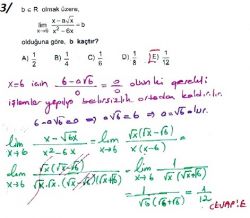 3/
b ∈ R olmak üzere,
lim x→6 (x − a√x)/(x² − 6x) = b
olduğuna göre, b kaçtır?
A) 1/2 B) 1/4 C) 1/6 D) 1/8 E) 1/12
x=6 için (6 − a√6)/0 = 0/0 olur ki gerekli
işlemler yapılıp belirsizlik ortadan kaldırılır.
6 − a√6 = 0 ⇒ a√6 = 6 ⇒ a = √6 dır.
lim x→6 (x − √6x)/(x² − 6x) = lim x→6 √x(√x − √6)/x(x − 6) =
lim x→6 √x(√x − √6)/√x.√x.(√x − √6)(√x + √6) = lim x→6 1/√x(√x + √6) =
1/√6(√6 + √6) = 1/12
CEVAP: E